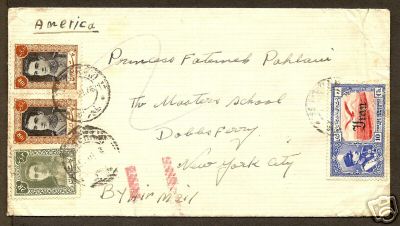 America
Princess Fatemeh Pahlavi
The Masters School
Dobbs Ferry
New York City
By Air Mail
Iran